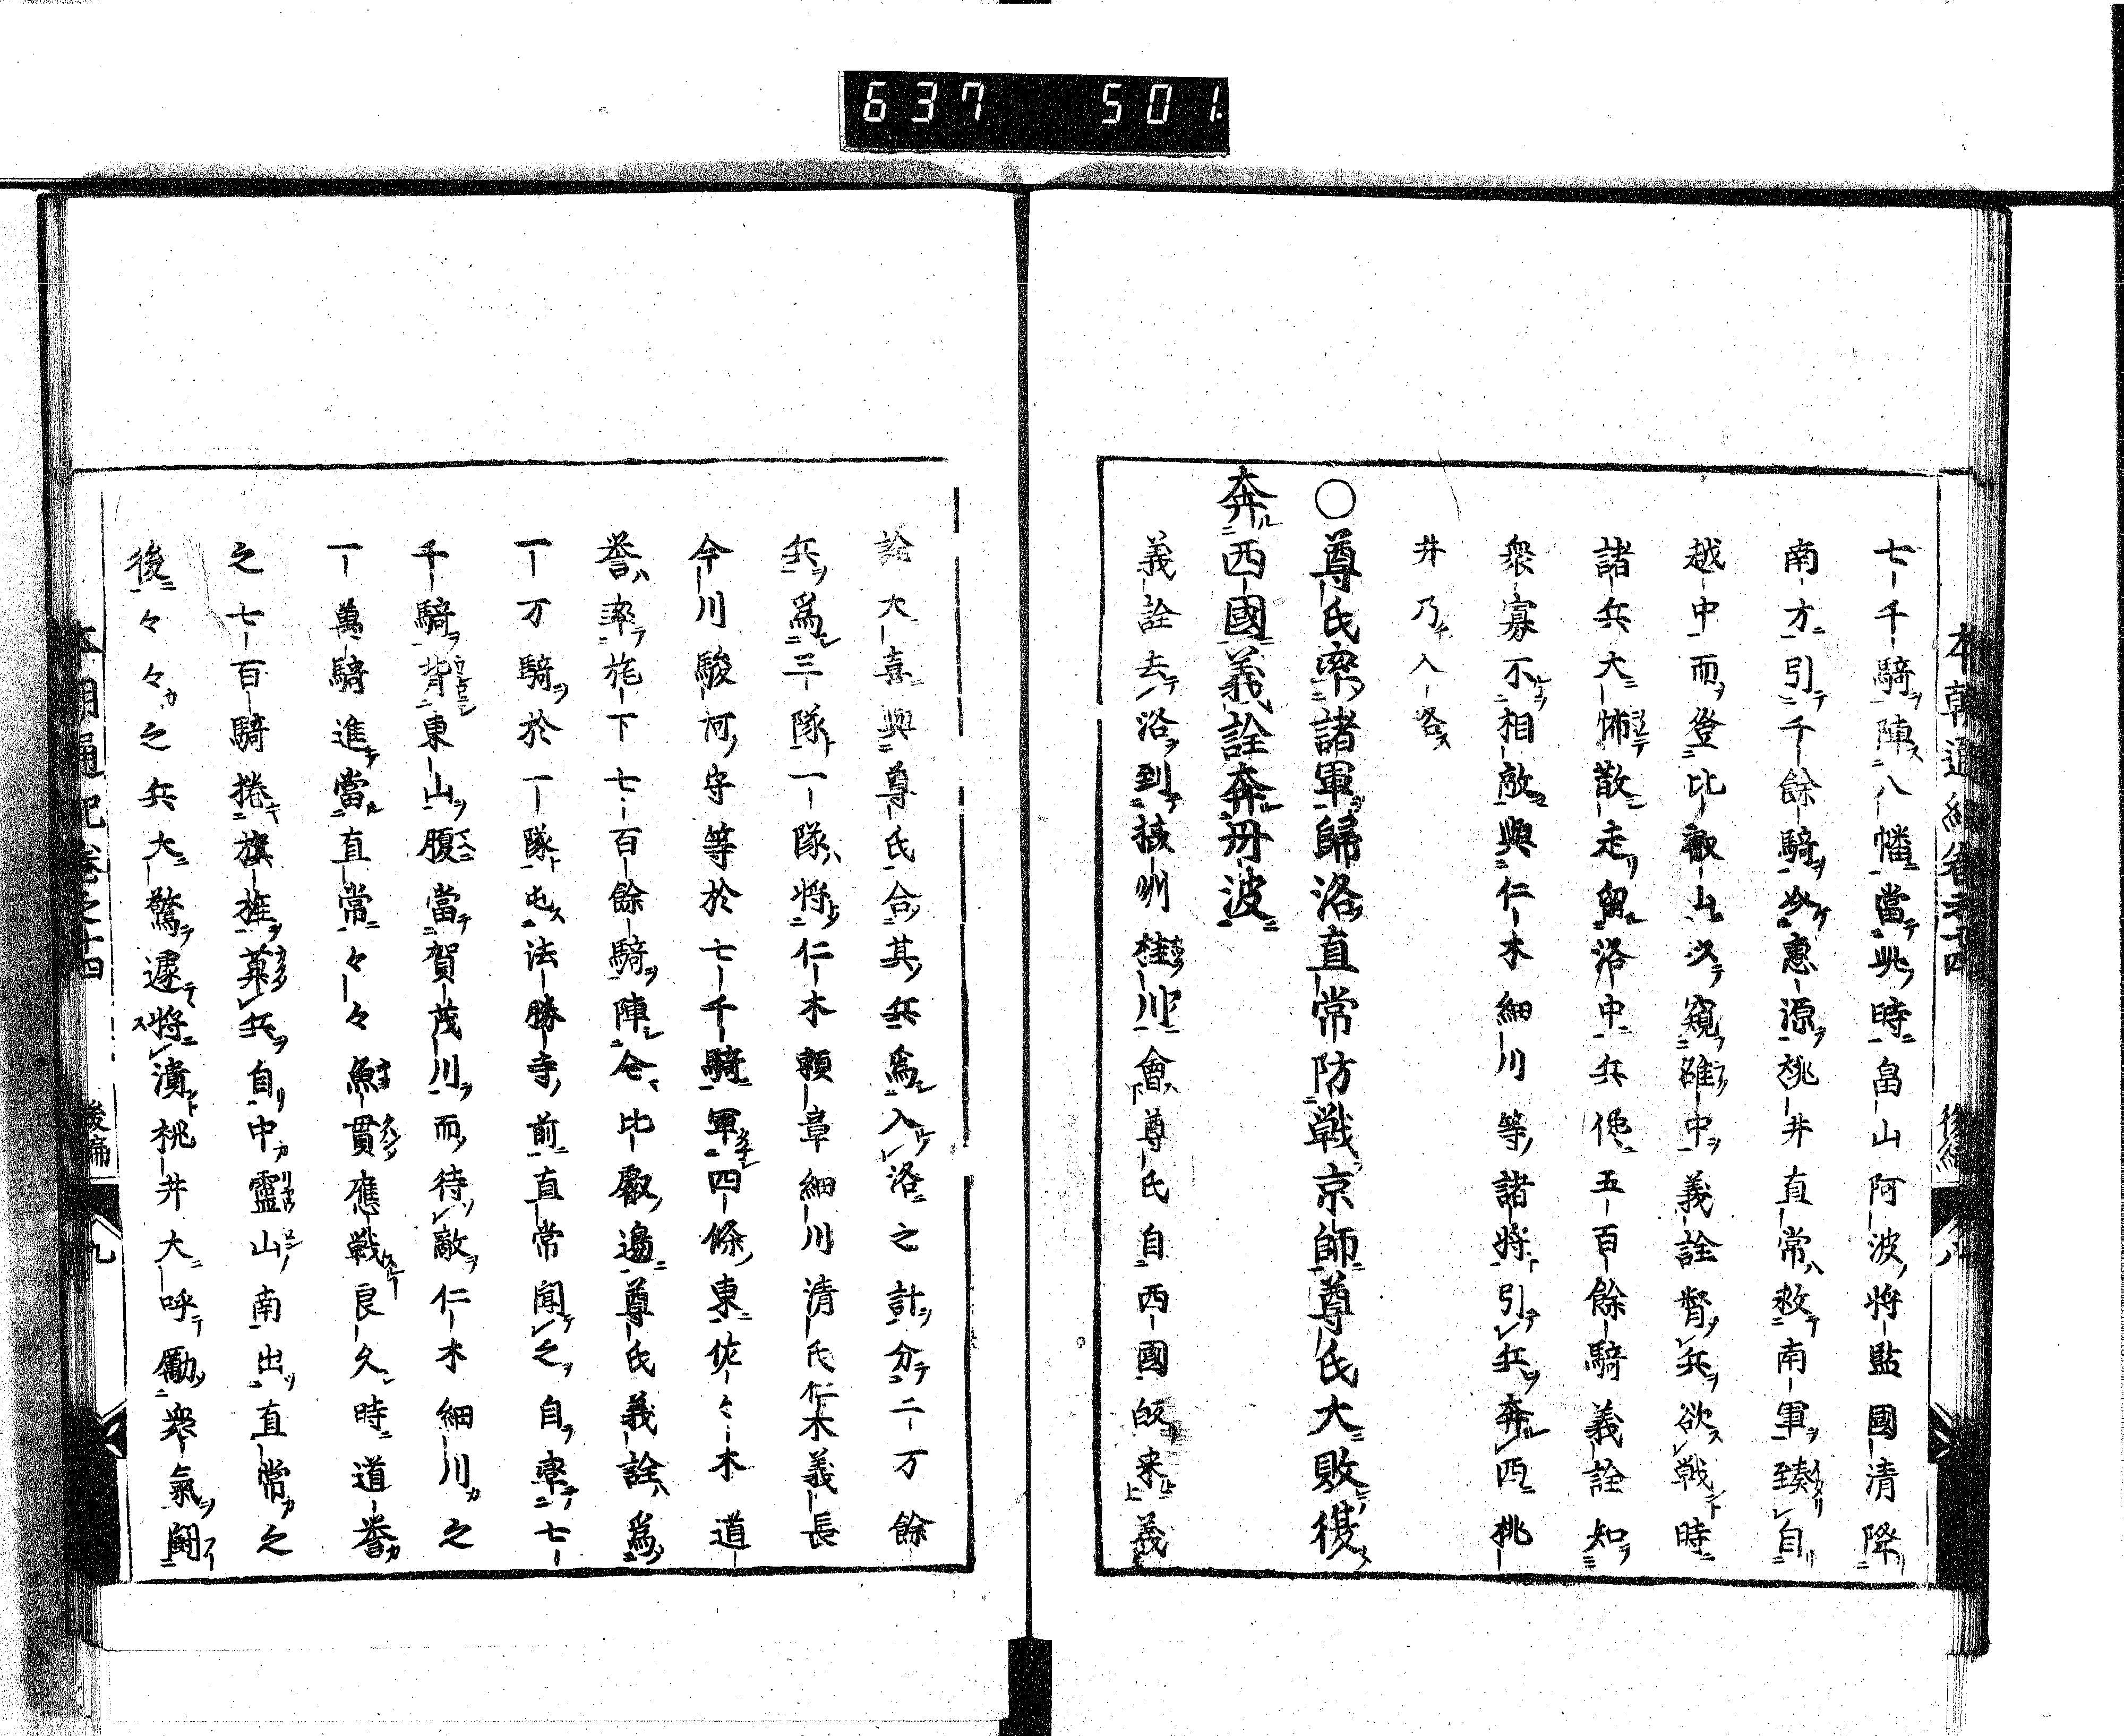 637 501.
七千騎陣八幡當此時畠山阿波將監國清降
南方引千餘騎攻惠源桃井直常救南軍臻自
越中而登比叡山次窺雒中義詮督兵欲戰時
諸兵大怖散走留洛中兵僅五百餘騎義詮知
衆寡不相敵與仁木細川等諸將引兵奔西桃
井乃入洛
〇尊氏率諸軍歸洛直常防戰京師尊氏大敗復
奔西國義詮奔丹波
義詮去洛到桂川會尊氏自西國皈来義
詮大喜與尊氏合其兵爲入洛之計分二万餘
兵爲三隊一隊將仁木頼章細川清氏仁木義長
今川駿河守等於七千騎軍四條東佐々木道
誉率旄下七百餘騎陣仝比叡邊尊氏義詮爲
一万騎於一隊屯法勝寺前直常聞之自率七
千騎背東山腹當賀茂川而待敵仁木細川之
一萬騎進當直常々々魚貫應戰良久時道誉
之七百騎捲旗旌菓兵自中靈山南出直常之
後々々之兵大驚遽將潰桃井大呼勵衆氣鬪
本朝通紀卷之十四 後編 九